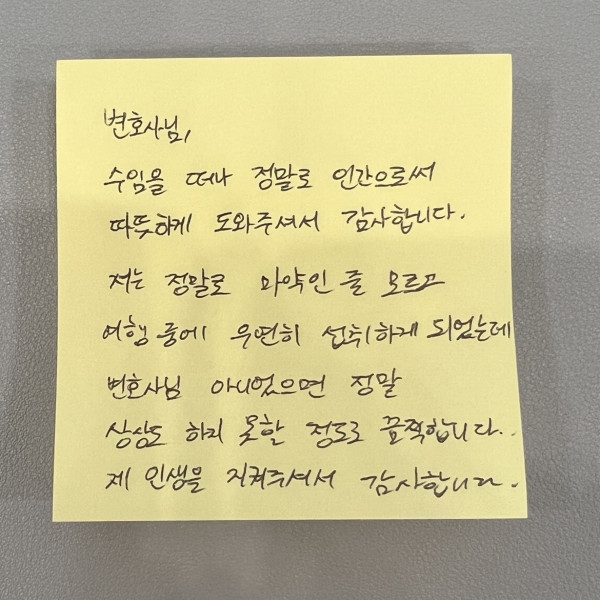 변호사님,
수임을 떠나 정말로 인간으로써
따뜻하게 도와주셔서 감사합니다.
저는 정말로 마약인 줄 모르고
여행 중에 우연히 섭취하게 되었는데
변호사님 아니었으면 정말
상상도 하지 못할 정도로 끔찍합니다..
제 인생을 지켜주셔서 감사합니다.